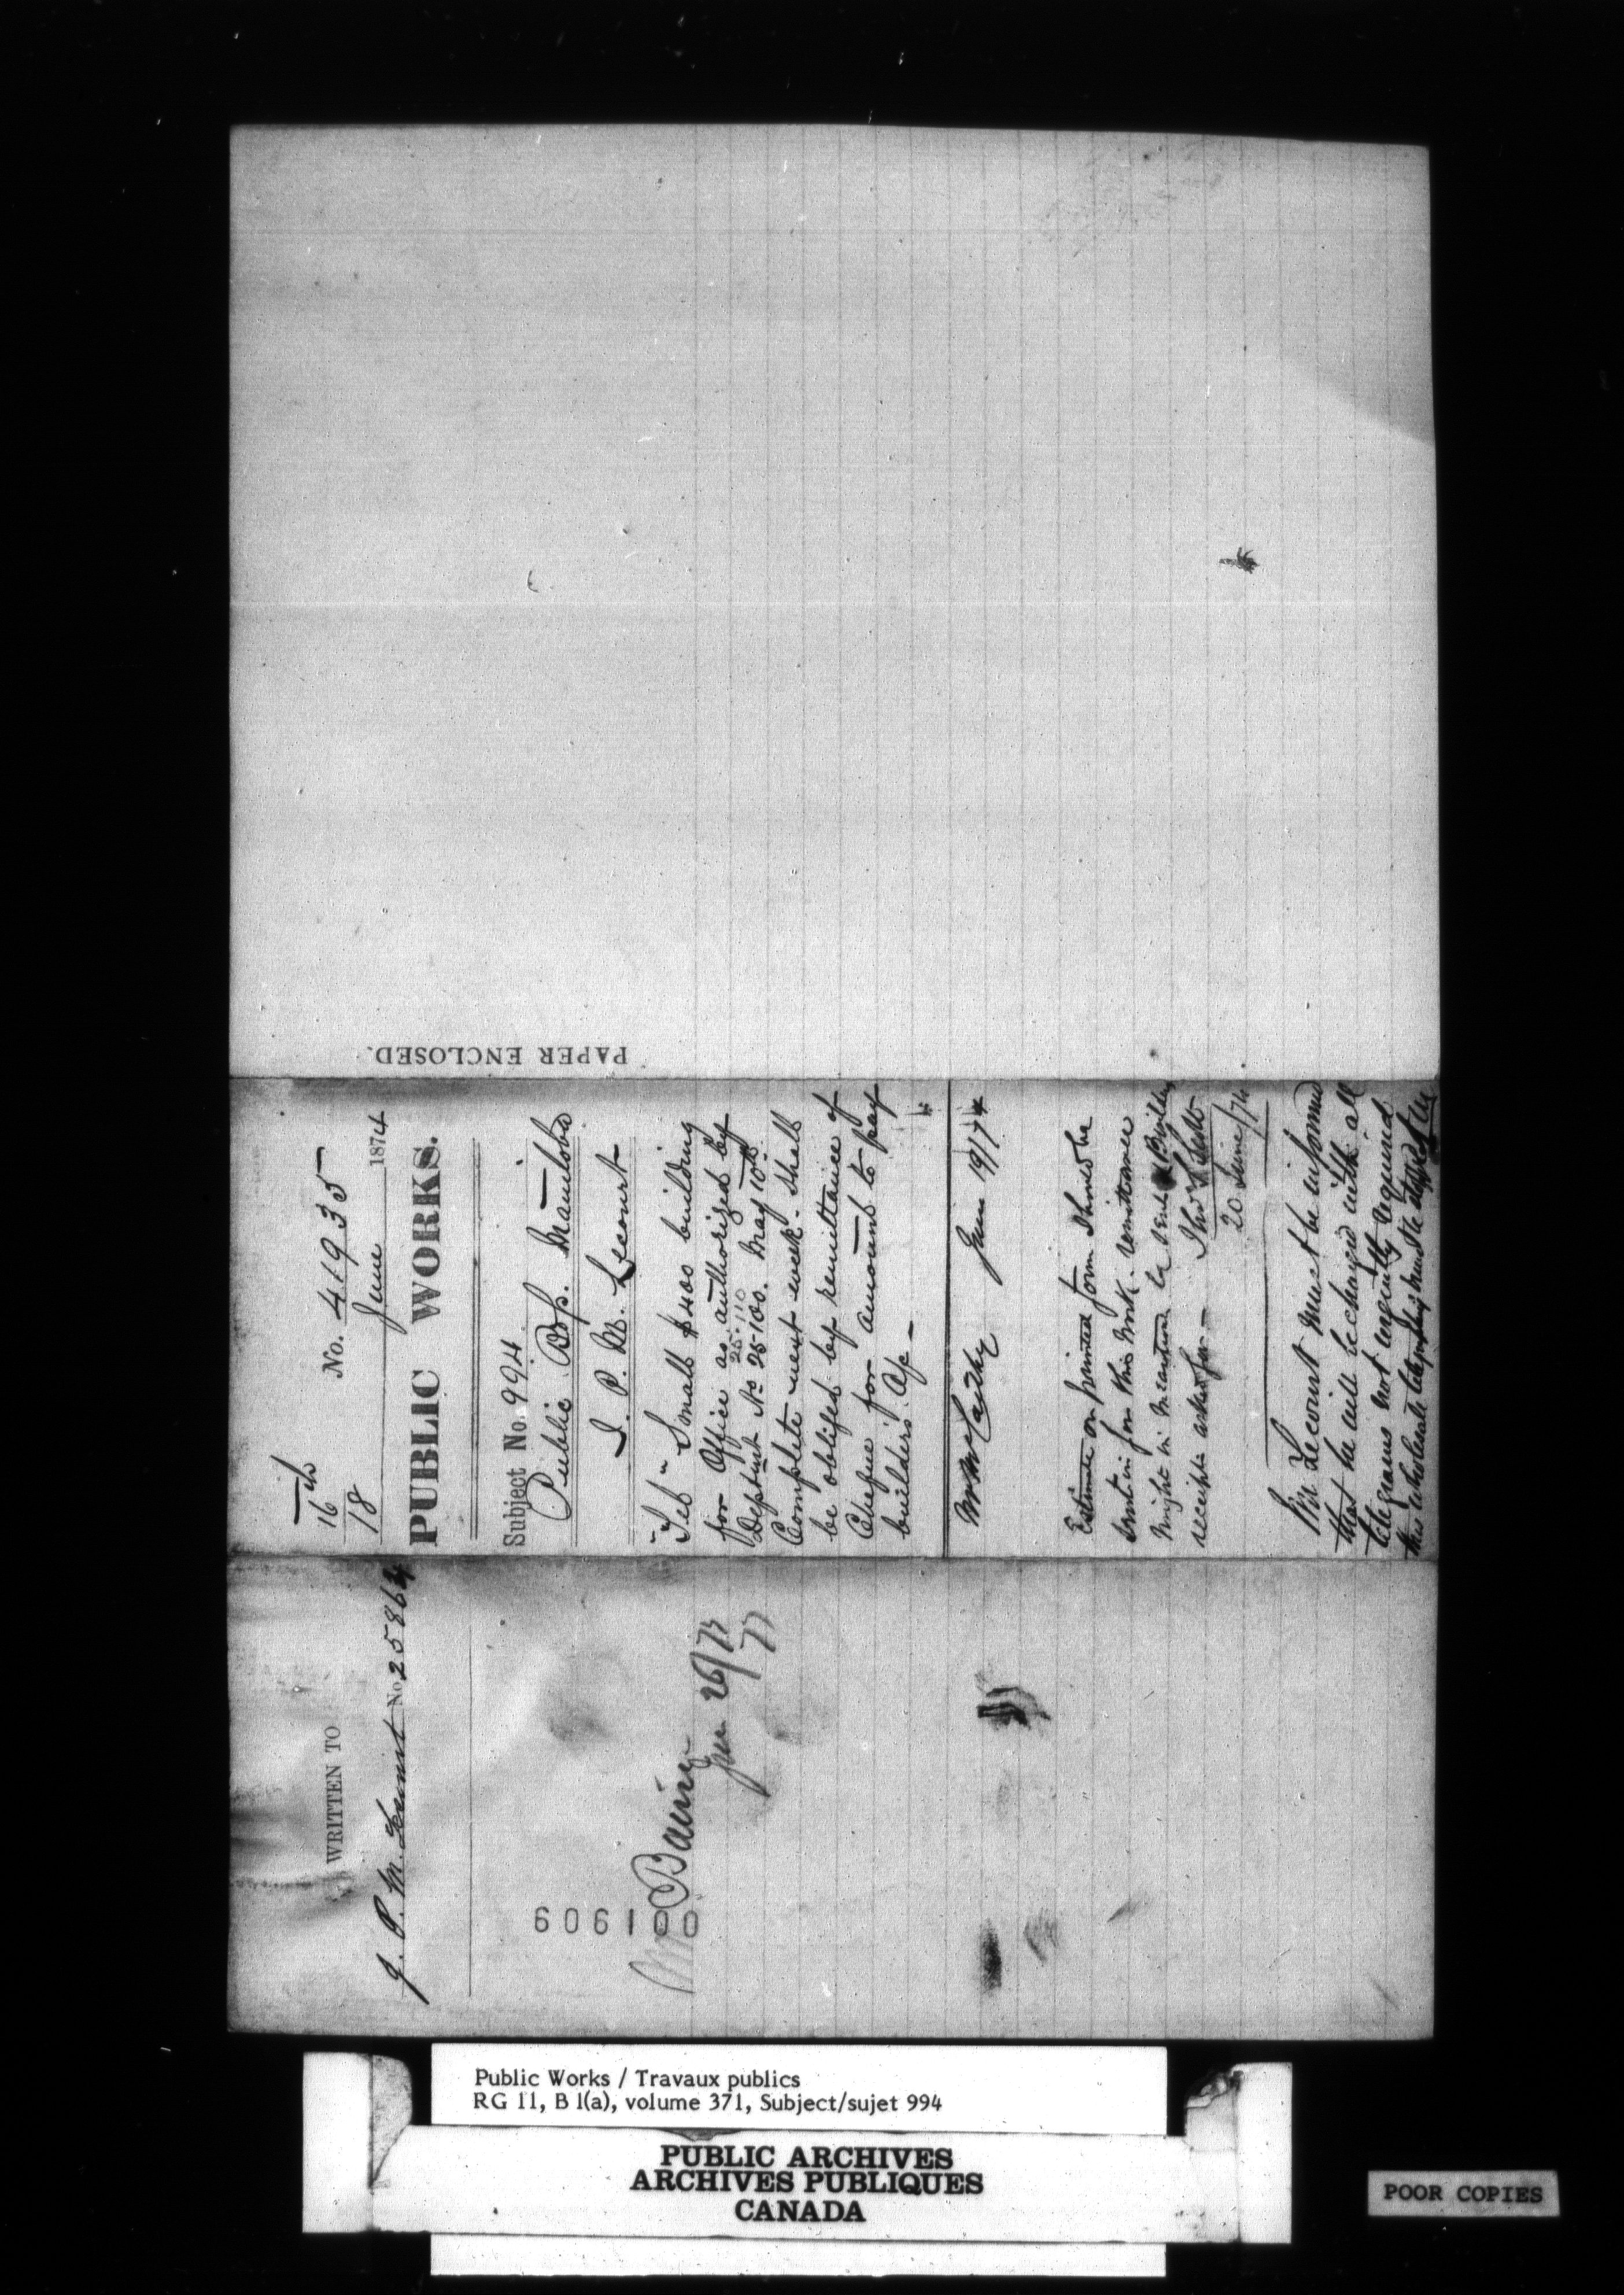 PAPER ENCLOSED.
16th
18
No. 41935
June 1874
PUBLIC WORKS.
Subject No. 994
Public Bdgs. Manitoba
J. P. M. Lecourt
"Tel" - Small $400 building
for Office as authorized by
25.110
Deptmt No 25100. May 10th
Complete next week - Shall
be obliged by remittance of
Cheque for amount to pay
builders.
Mr McCarthy June 19/74
Estimate on printed form should be
sent in for this work. Remittance
might in meantime be sent &
receipts asked for - Thos S Scott
20 June/74
Mr Lecourt must be informed
that he will be charged with all
telegrams not urgently required
this wholesale telegraphing must be stopped
WRITTEN TO
J. P. M. Lecourt No. 25864
606100
Mr Baine
Jun 26/73
77
Public Works / Travaux publics
RG 11, B 1(a), volume 371, Subject/sujet 994
PUBLIC ARCHIVES
ARCHIVES PUBLIQUES
CANADA
POOR COPIES